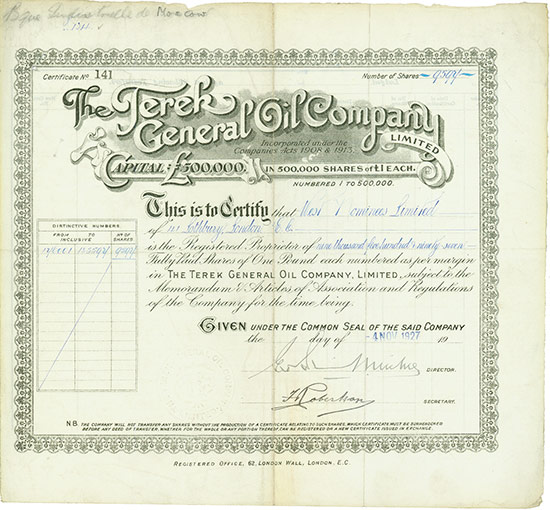 Moscow
Certificate No 141
Number of Shares 9597
The Terek
General Oil Company
LIMITED
Incorporated under the
Companies Acts 1908 & 1913.
CAPITAL: £500,000,
IN 500,000 SHARES of £1 EACH.
NUMBERED 1 TO 500,000.
This is to Certify that Nominees Limited
of Lothbury, London E.C.
is the Registered Proprietor of nine thousand five hundred & ninety seven
Fully Paid Shares of One Pound each numbered as per margin
in THE TEREK GENERAL OIL COMPANY, LIMITED, subject to the
Memorandum & Articles of Association and Regulations
of the Company for the time being.
DISTINCTIVE NUMBERS.
FROM TO
INCLUSIVE
No OF
SHARES
9597
GIVEN UNDER THE COMMON SEAL OF THE SAID COMPANY
the day of -4 NOV 1927 19
DIRECTOR.
Robertson
SECRETARY.
N.B. THE COMPANY WILL NOT TRANSFER ANY SHARES WITHOUT THE PRODUCTION OF A CERTIFICATE RELATING TO SUCH SHARES, WHICH CERTIFICATE MUST BE SURRENDERED
BEFORE ANY DEED OF TRANSFER, WHETHER FOR THE WHOLE OR ANY PORTION THEREOF CAN BE REGISTERED OR A NEW CERTIFICATE ISSUED IN EXCHANGE.
REGISTERED OFFICE, 62, LONDON WALL, LONDON, E.C.